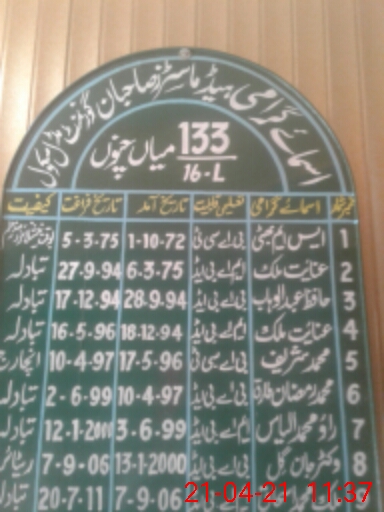 اسمائے گرامی ہیڈ ماسٹرز صاحبان گورنمنٹ مڈل سکول
133/16-L میاں چنوں
نمبر شمار اسمائے گرامی تعلیمی قابلیت تاریخ آمد تاریخ فراغت کیفیت
1 ایس ایم بھٹی بی اے سی ٹی 1-10-72 5-3-75
2 عنایت ملک ایم اے بی ایڈ 6-3-75 27-9-94 تبادلہ
3 حافظ عبدالوہاب بی اے بی ایڈ 28-9-94 17-12-94 تبادلہ
4 عنایت ملک ایم اے بی ایڈ 18-12-94 16-5-96 تبادلہ
5 محمد شریف بی اے سی ٹی 17-5-96 10-4-97 انچارج
6 محمد رمضان طارق بی اے بی ایڈ 10-4-97 2-6-99 تبادلہ
7 راؤ محمد الیاس ایم اے بی ایڈ 3-6-99 12-1-2000 تبادلہ
8 وکٹر جان گل بی اے بی ایڈ 13-1-2000 7-9-06 ریٹائر
7-9-06 20-7-11 تبادلہ
21-04-21 11:37